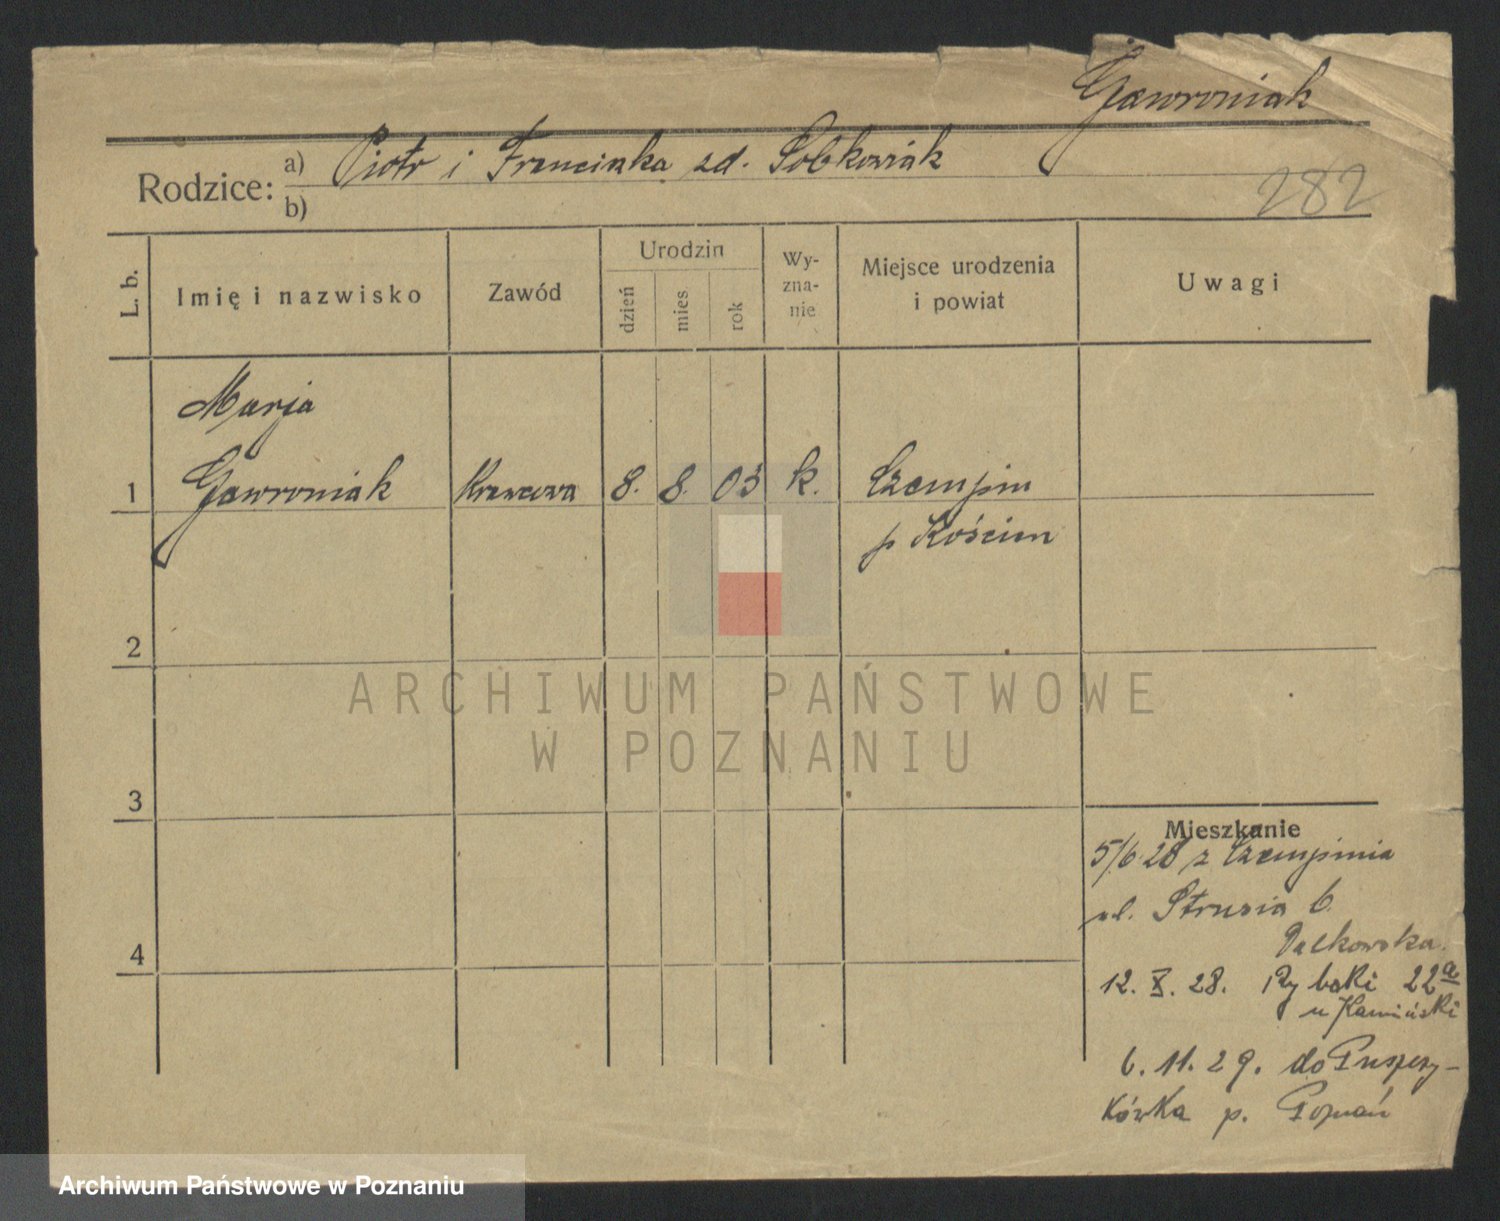 Gawroniak
Rodzice: a) Piotr i Franciszka zd. Sobkowiak
b)
282
L. b.
Imię i nazwisko
Zawód
Urodzin
dzień
mies.
rok
Wy-
zna-
nie
Miejsce urodzenia
i powiat
Uwagi
Marja
1 Gawroniak Krawcowa 8. 8. 03 k. Czempin
p Kościan
2
3
4
Mieszkanie
5/6 28 z Czempinia
ul. Strusia 6.
12. X. 28. Rybaki 22a
u Kamiński
6. 11. 29. do Puszczy-
kówka p. Poznań
ARCHIWUM PAŃSTWOWE
W POZNANIU
Archiwum Państwowe w Poznaniu